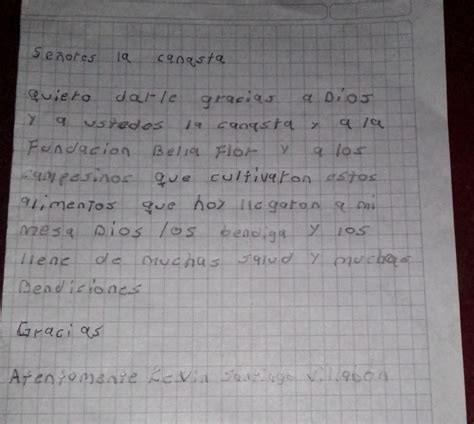 Señores la canasta
quiero darle gracias a Dios
y a ustedes la canasta y a la
Fundacion Bella Flor y a los
campesinos que cultivaron estos
alimentos que hoy llegaron a mi
mesa Dios los bendiga y los
llene de muchas salud y muchas
Bendiciones
Gracias
Atentamente Kevin Santiago Villabón